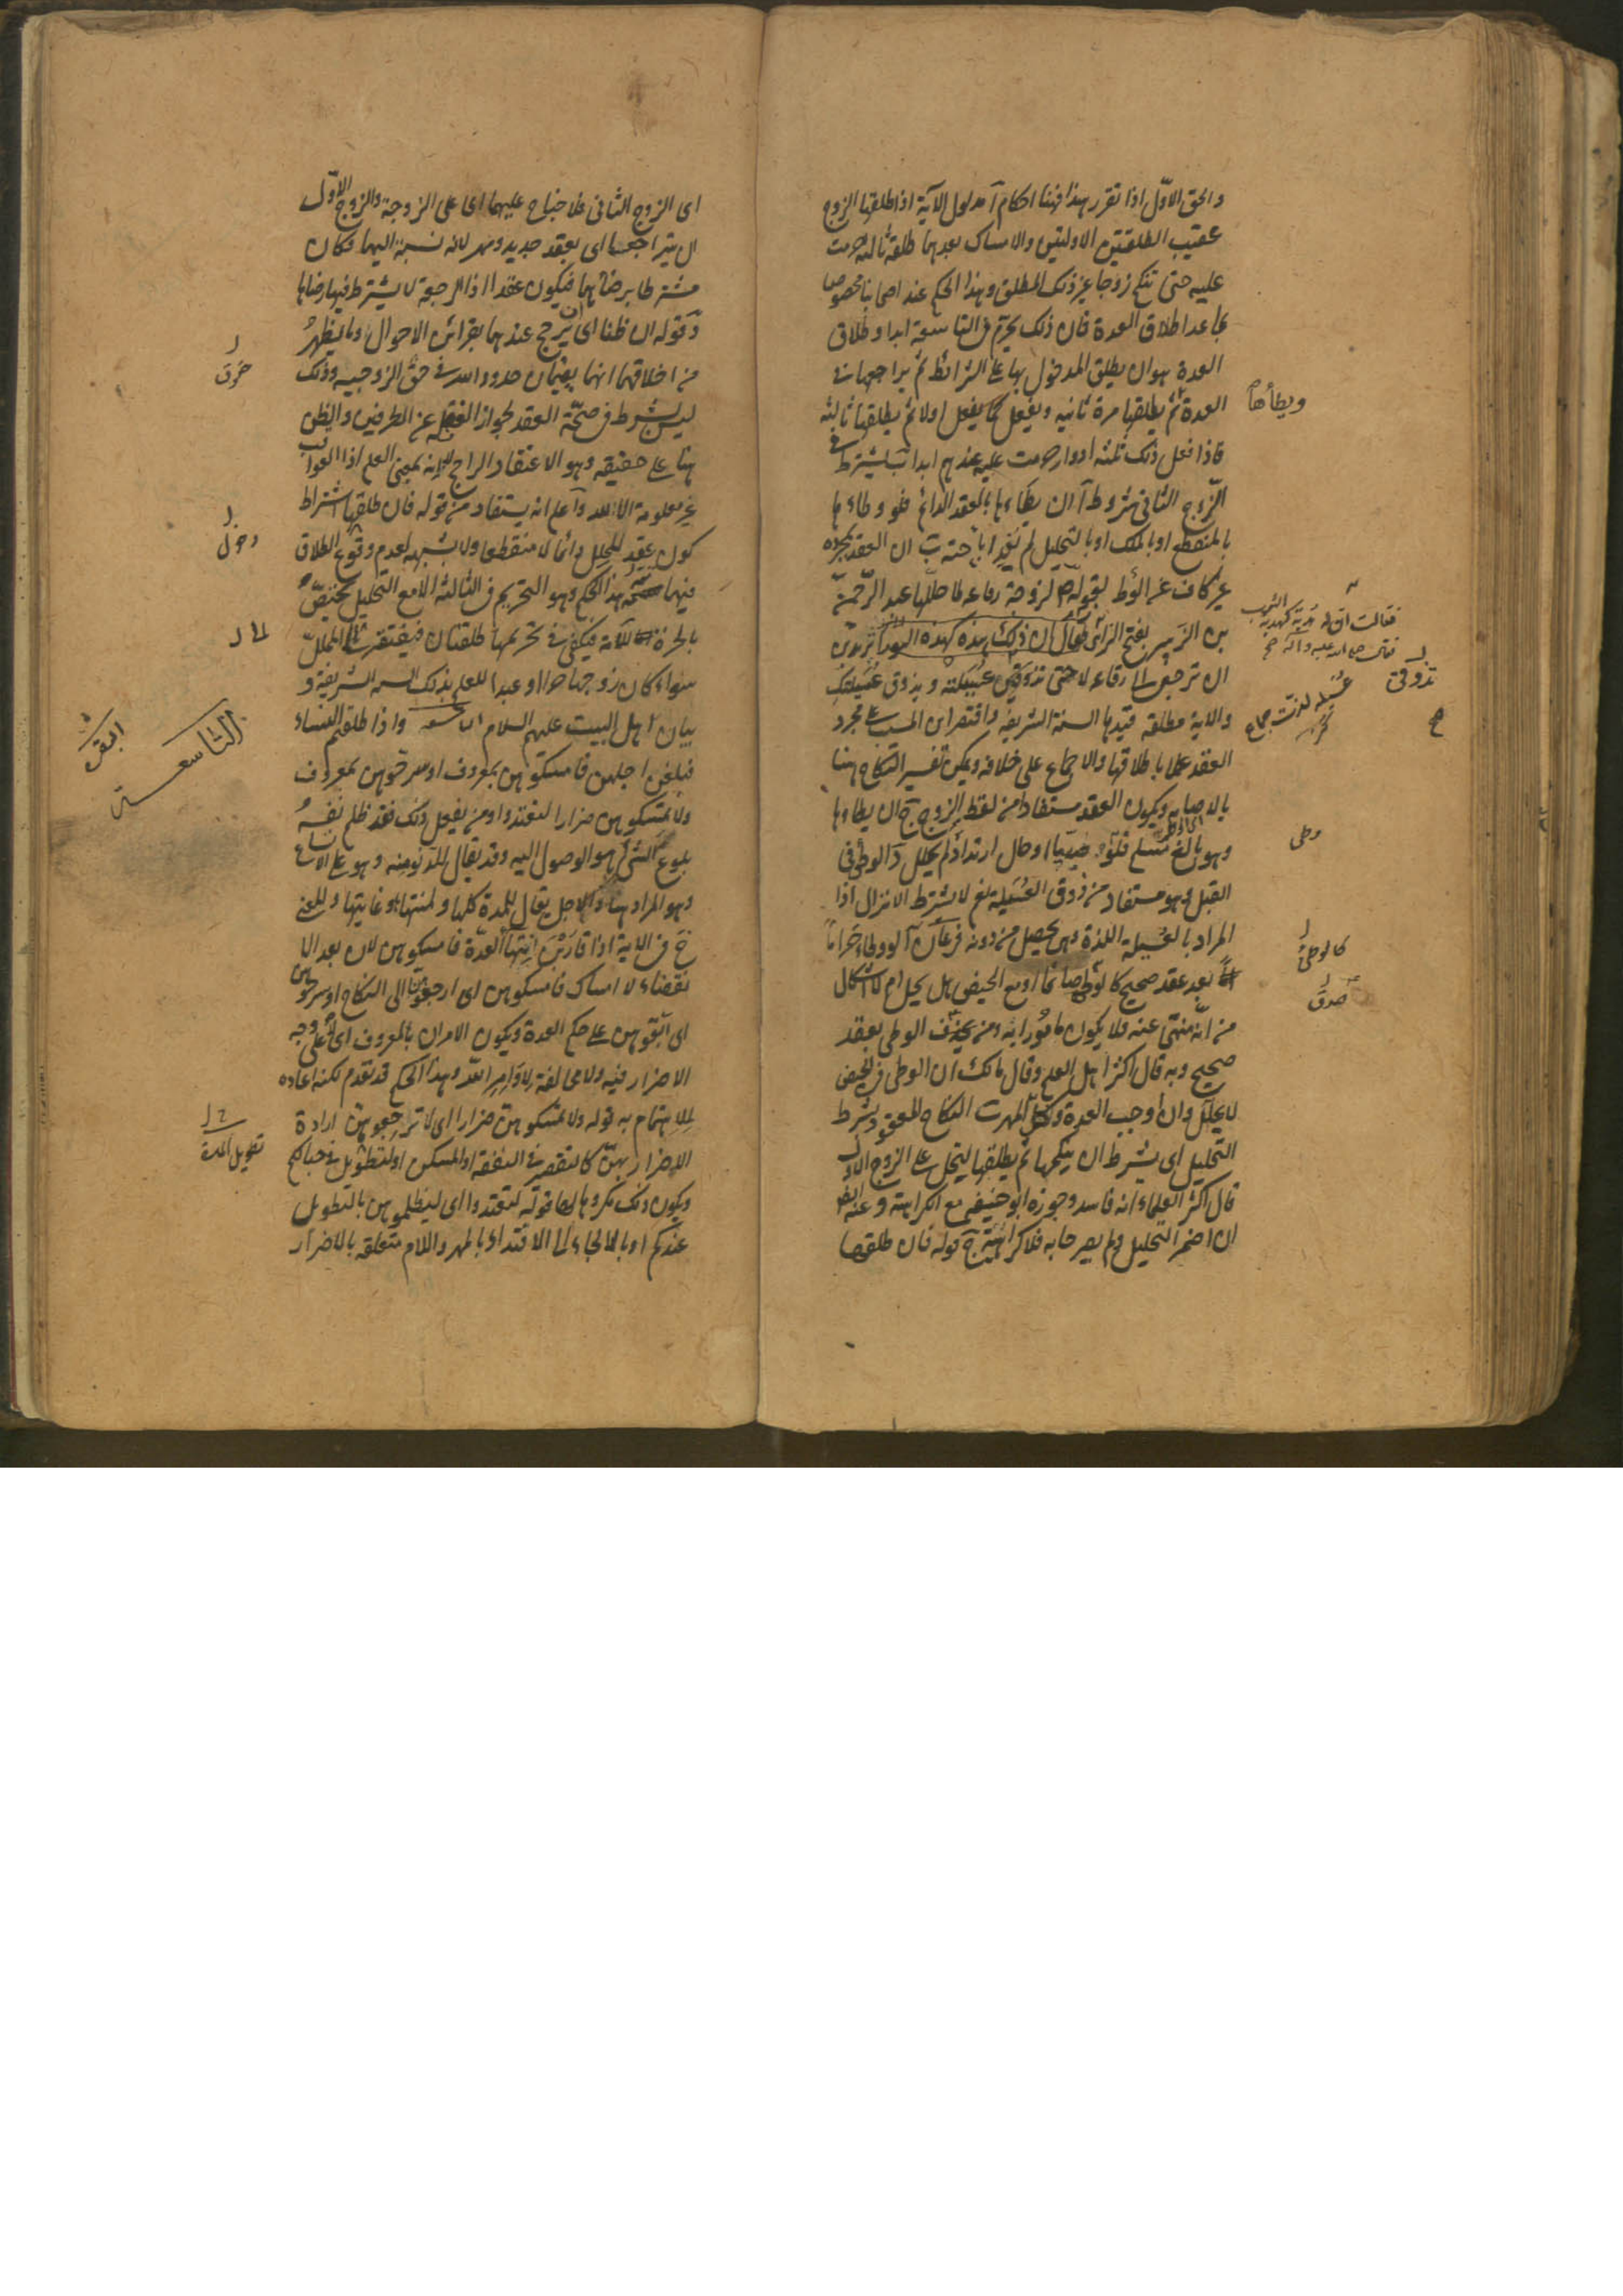 والحق الاوّل اذا تقرر هذا فهنا احكام آ مدلول الآية اذا طلقها الزوج
عقيب الطلقتين الاولتين والامساك بعدهما طلقة ثالثة حرمت
عليه حتى تنكح زوجا غير ذلك المطلق وهذا الحكم عند اصحابنا مخصوص
بما عدا طلاق العدة فان ذلك يحرم في التاسعة ابدا وطلاق
العدة هو ان يطلق المدخول بها على الشرائط ثم يراجعها في
العدة ثم يطلقها مرة ثانية ويفعل كما يفعل اولا ثم يطلقها ثالثة
ويطأها
فاذا فعل ذلك ثلثة ادوار حرمت عليه عندهم ابدا ب يشترط في
الزوج الثاني شروط آ ان يطاءها بالعقد الدائم فلو وطاءها
بالمنقطع او بالملك او بالتحليل لم يفد اباحته ب ان العقد بمجرده
غير كاف عن الوطئ لقوله لزوجة رفاعه لما حللها عبد الرحمن
بن الزبير بفتح الزاى فقال ان ذلك هذه كهذه الثوب تريدين
ان ترجعى الى رفاعه لا حتى تذوقي عسيلته ويذوق عسيلتك
تذوقى
والاية مطلقه قيدها السنة الشريفة واقتصر ابن المسيب على مجرد
العقد عملا باطلاقها والاجماع على خلافه ويمكن تفسير النكاح هنا
بالاصابه ويكون العقد مستفادا من لفظ الزوج ج ان يطاءها
وهو بالغ مسلم فلو صبيا او حال ارتداد لم يحلل د الوطى فى
وطى
القبل وهو مستفاد من ذوق العسيلة نعم لا يشترط الانزال اذا
المراد بالعسيلة اللذة وهى يحصل من دونه فرعان آ لو وطاء حراما
كالوطئ
بعد عقد صحيح كالوطى صائما او مع الحيض هل يحل ام لا اشكال
صدق
من انه منهى عنه فلا يكون مامورا به ومن الوطى بعقد
صحيح وبه قال اكثر اهل العلم وقال مالك ان الوطى فى الحيض
لا يحلل وان اوجب العدة وكل المهر ب النكاح المعقود بشرط
التحليل اى بشرط ان ينكحها ثم يطلقها لتحل على الزوج الاول
قال اكثر العلماء انه فاسد وجوزه ابو حنيفه مع الكراهة وعنه ايضا
ان اضمر التحليل ولم يصرحا به فلا كراهة ج قوله فان طلقها
اى الزوج الثانى فلا جناح عليهما اى على الزوجة والزوج الاوّل
ان يتراجعا اى بعقد جديد ومهر لانه نسبة اليهما فكان
مشترطا برضاهما فيكون عقدا اذ الرجعة لا يشترط فيها رضاها
د قوله ان ظنا اى ترجح عندهما بقرائن الاحوال وما يظهر
من اخلاقهما انهما يقيمان حدود الله فى حق الزوجيه وذلك
حقوق
ليس بشرط فى صحة العقد لجواز الغفلة عن الطرفين والظن
هنا على حقيقته وهو الاعتقاد الراجح لا انه بمعنى العلم اذ العواقب
غير معلومة الا لله واعلم انه يستفاد من قوله فان طلقها اشتراط
كون عقد المحلل دائما لا منقطعا ولا شبهه لعدم وقوع الطلاق
فيهما تتمه هذا الحكم وهو التحريم فى الثالثه الا مع التحليل مختص
بالحرة اما الامة فيكفى فى تحريمها طلقتان فيفتقر الى المحلل
سواء كان زوجها حرا او عبدا للعلم بذلك السنة الشريفة و
بيان اهل البيت عليهم السلام التاسعه واذا طلقتم النساء
التاسعة
البقرة
فبلغن اجلهن فامسكوهن بمعروف او سرحوهن بمعروف
ولا تمسكوهن ضرارا لتعتدوا ومن يفعل ذلك فقد ظلم نفسه
بلوغ الشئ هو الوصول اليه وقد يقال للدنو منه وهو على الاتساع
وهو المراد هنا والاجل يقال للمدة كلها ولمنتهاها وغايتها والمعنى
ح فى الاية اذا قاربن انتهاء العدة فامسكوهن لان بعد الا
نقضاء لا امساك فامسكوهن اى ارجعوهن الى النكاح او سرحوهن
اى ابقوهن على حكم العدة ويكون الامران بالمعروف اى على وجه
لا ضرار فيه ولا مخالفة لاوامر الله وهذا الحكم قد تقدم لكنه اعاده
للاهتمام به قوله ولا تمسكوهن ضرارا اى لا تراجعوهن ارادة
الاضرار بهن كالتقصير فى النفقة او المسكن او لتطويل فى حبالكم
تطويل المدة
ويكون ذلك مكروها لها قوله لتعتدوا اى لتظلموهن بالتطويل
عندكم او بالالجاء الى الافتداء بالمهر واللام متعلقه بالاضرار